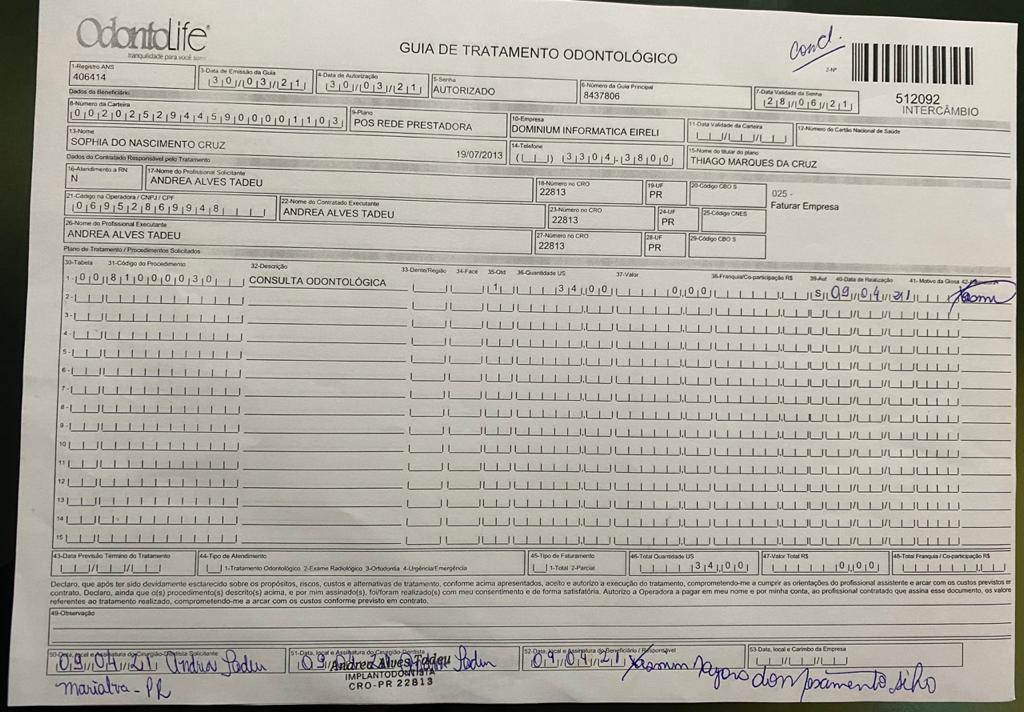 OdontoLife
tranquilidade para você sorrir
GUIA DE TRATAMENTO ODONTOLÓGICO
concl.
2-Nº
512092
INTERCÂMBIO
1-Registro ANS 3-Data de Emissão da Guia 4-Data de Autorização 5-Senha 6-Número da Guia Principal 7-Data Validade da Senha
406414 30/03/21 30/03/21 AUTORIZADO 8437806 28/06/21
Dados do Beneficiário
8-Número da Carteira 9-Plano 10-Empresa 11-Data Validade da Carteira 12-Número do Cartão Nacional de Saúde
00202529445900001103 POS REDE PRESTADORA DOMINIUM INFORMATICA EIRELI
13-Nome 14-Telefone 15-Nome do titular do plano
SOPHIA DO NASCIMENTO CRUZ 19/07/2013 ( ) 3304-3800 THIAGO MARQUES DA CRUZ
Dados do Contratado Responsável pelo Tratamento
16-Atendimento a RN 17-Nome do Profissional Solicitante 18-Número no CRO 19-UF 20-Código CBO S
N ANDREA ALVES TADEU 22813 PR
025 -
Faturar Empresa
21-Código na Operadora / CNPJ / CPF 22-Nome do Contratado Executante 23-Número no CRO 24-UF 25-Código CNES
06952869948 ANDREA ALVES TADEU 22813 PR
26-Nome do Profissional Executante 27-Número no CRO 28-UF 29-Código CBO S
ANDREA ALVES TADEU 22813 PR
Plano de Tratamento / Procedimentos Solicitados
30-Tabela 31-Código do Procedimento 32-Descrição 33-Dente/Região 34-Face 35-Qtd 36-Quantidade US 37-Valor 38-Franquia/Co-participação R$ 39-Aut 40-Data de Realização 41-Motivo da Glosa
1- 00 81000030 CONSULTA ODONTOLÓGICA 1 34,00 0,00 S 09/04/21
2-
3-
4-
5-
6-
7-
8-
9-
10
11
12
13
14
15
43-Data Previsão Término do Tratamento 44-Tipo de Atendimento 45-Tipo de Faturamento 46-Total Quantidade US 47-Valor Total R$ 48-Total Franquia / Co-participação R$
1-Tratamento Odontológico 2-Exame Radiológico 3-Ortodontia 4-Urgência/Emergência 1-Total 2-Parcial 34,00 0,00
Declaro, que após ter sido devidamente esclarecido sobre os propósitos, riscos, custos e alternativas de tratamento, conforme acima apresentados, aceito e autorizo a execução do tratamento, comprometendo-me a cumprir as orientações do profissional assistente e arcar com os custos previstos em
contrato. Declaro, ainda que o(s) procedimento(s) descrito(s) acima, e por mim assinado(s), foi/foram realizado(s) com meu consentimento e de forma satisfatória. Autorizo a Operadora a pagar em meu nome e por minha conta, ao profissional contratado que assina esse documento, os valores
referentes ao tratamento realizado, comprometendo-me a arcar com os custos conforme previsto em contrato.
49-Observação
50-Data, local e Assinatura do Cirurgião-Dentista Solicitante 51-Data, local e Assinatura do Cirurgião-Dentista 52-Data, local e Assinatura do Beneficiário / Responsável 53-Data, local e Carimbo da Empresa
09/04/21 Andrea Tadeu 09/04/21 Tadeu 09/04/21
Andrea Alves Tadeu
IMPLANTODONTISTA
CRO-PR 22813
Marialva - PR